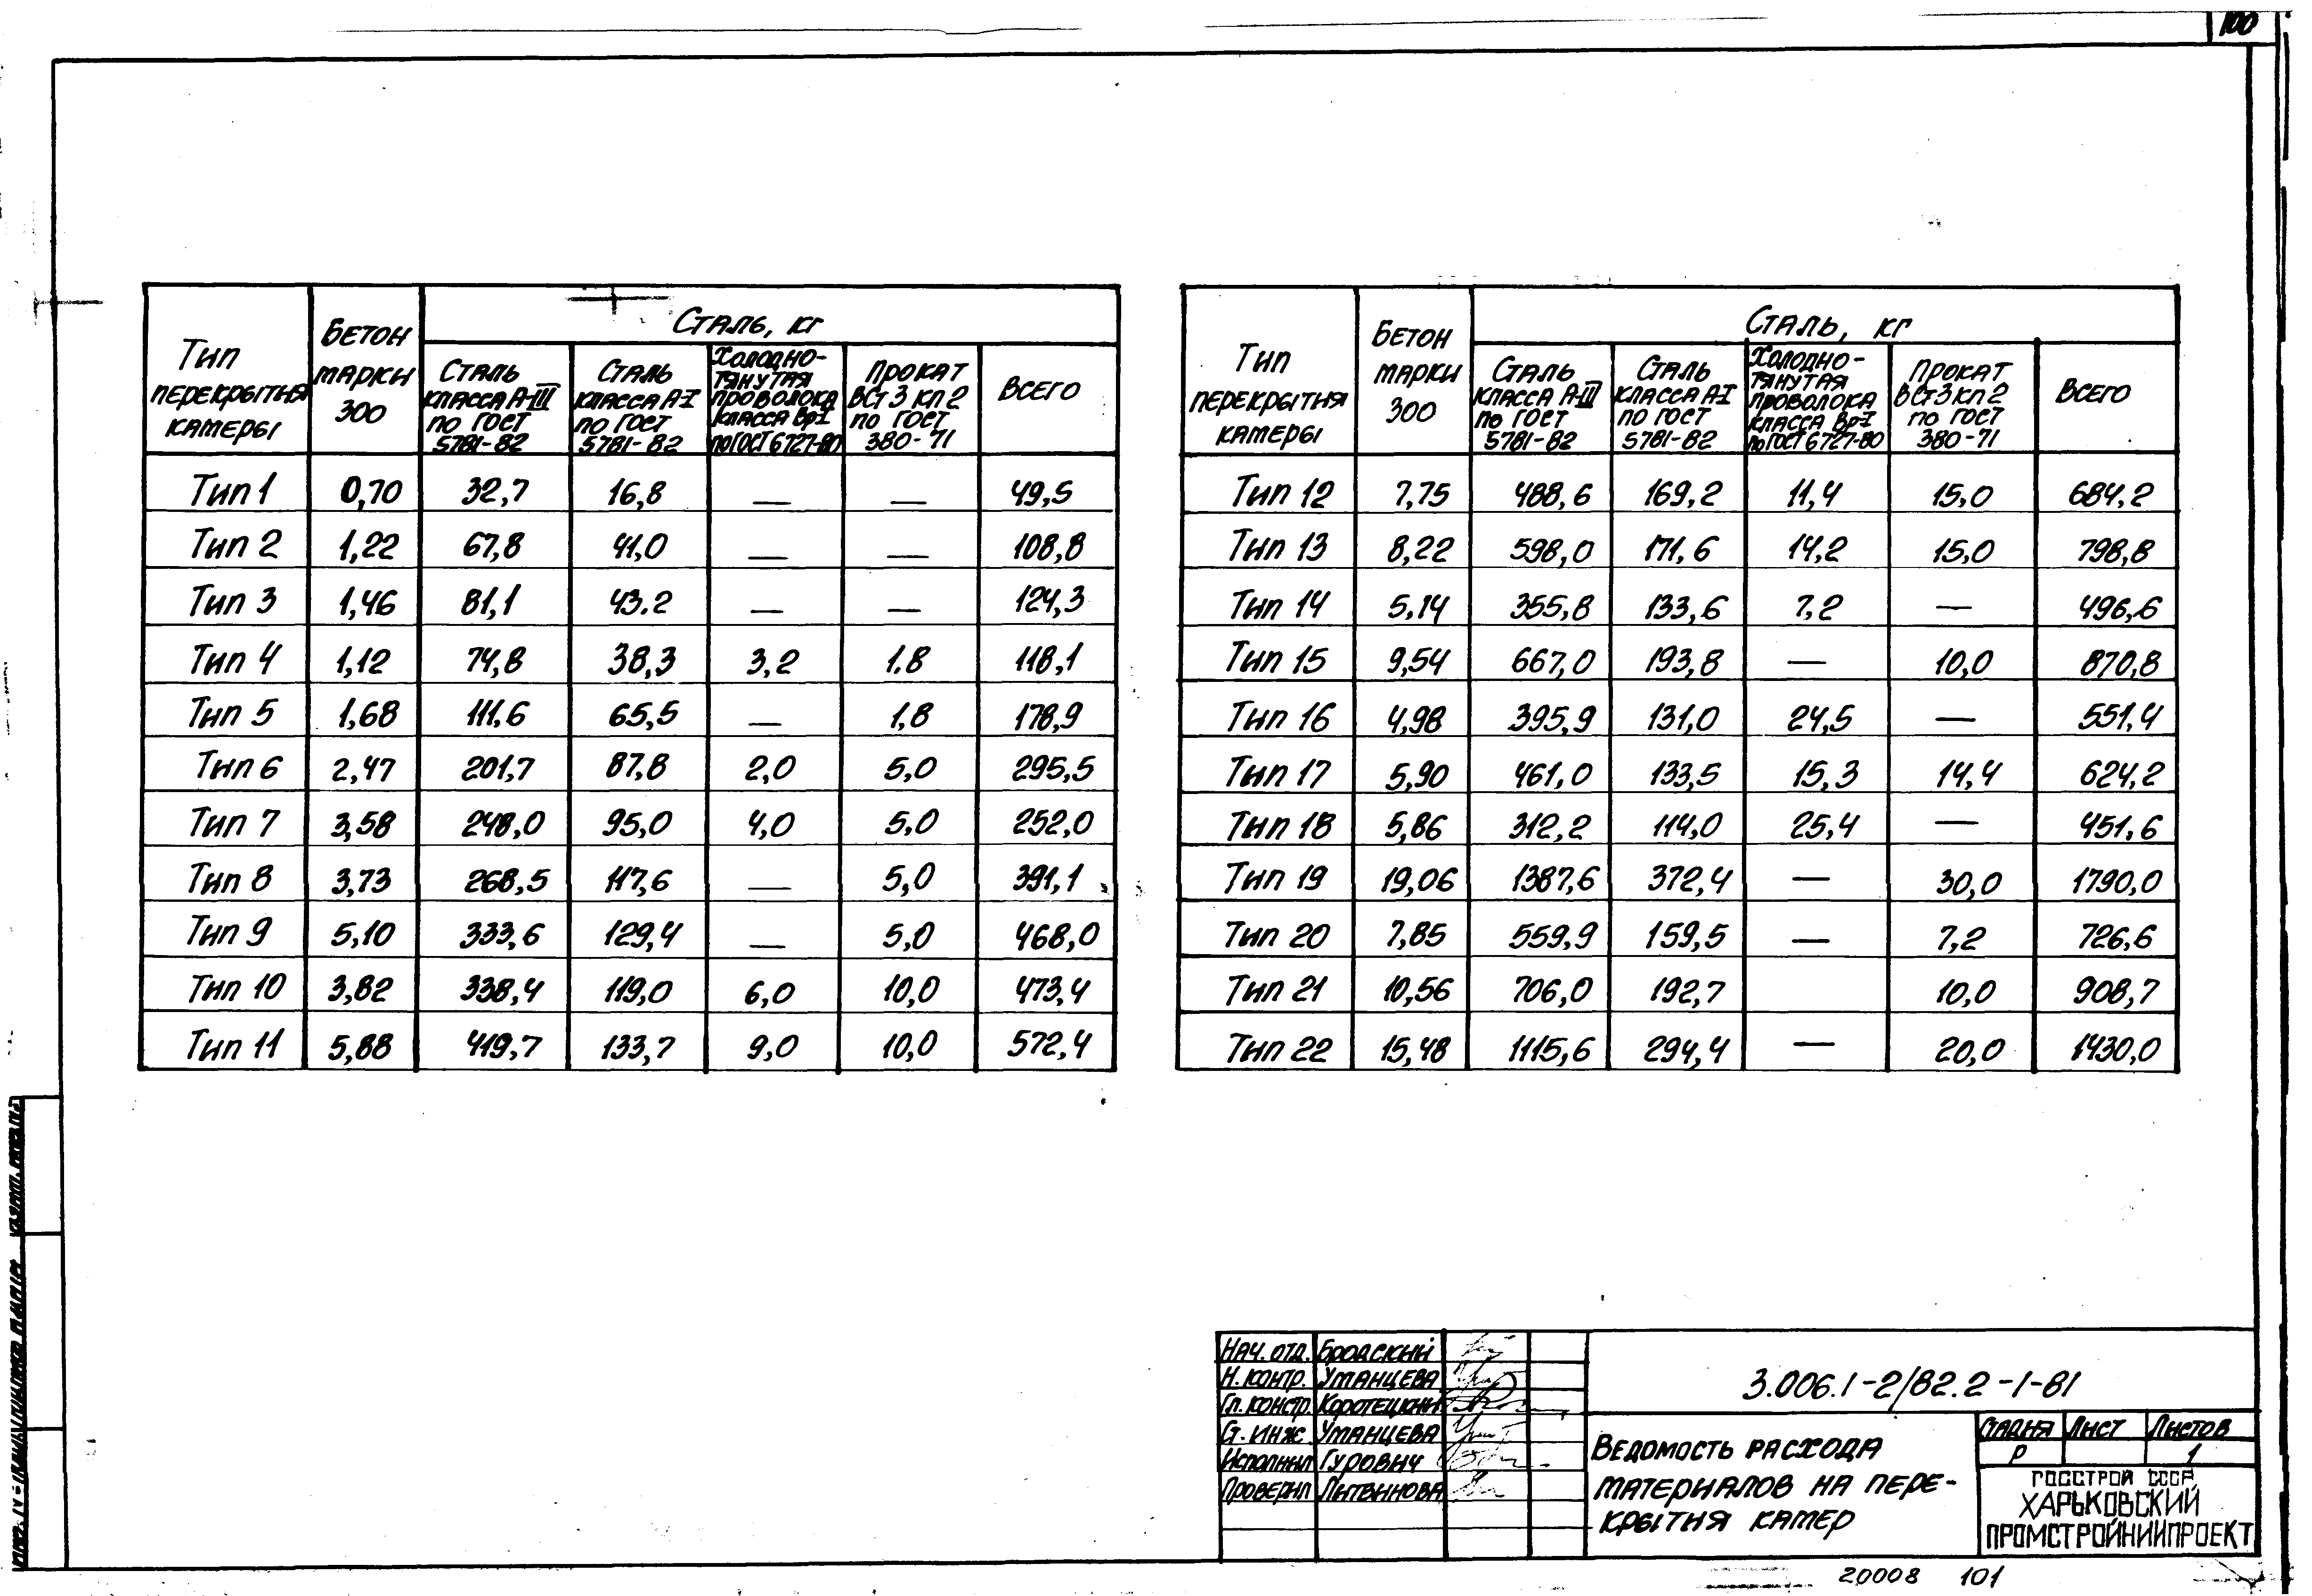 100
Сталь, кг
Тип перекрытия камеры | Бетон марки 300 | Сталь класса А-III по ГОСТ 5781-82 | Сталь класса А-I по ГОСТ 5781-82 | Холодно-тянутая проволока класса Вр-I по ГОСТ 6727-80 | Прокат ВСт3кп2 по ГОСТ 380-71 | Всего
Тип 1 0,70 32,7 16,8 — — 49,5
Тип 2 1,22 67,8 41,0 — — 108,8
Тип 3 1,46 81,1 43.2 — — 124,3
Тип 4 1,12 74,8 38,3 3,2 1.8 118,1
Тип 5 1,68 111,6 65,5 — 1,8 178,9
Тип 6 2,47 201,7 87,8 2,0 5,0 295,5
Тип 7 3,58 248,0 95,0 4,0 5,0 252,0
Тип 8 3,73 268,5 117,6 — 5,0 391,1
Тип 9 5,10 333,6 129,4 — 5,0 468,0
Тип 10 3,82 338,4 119,0 6,0 10,0 473,4
Тип 11 5,88 419,7 133,7 9,0 10,0 572,4
Сталь, кг
Тип перекрытия камеры | Бетон марки 300 | Сталь класса А-III по ГОСТ 5781-82 | Сталь класса А-I по ГОСТ 5781-82 | Холодно-тянутая проволока класса Вр-I по ГОСТ 6727-80 | Прокат ВСт3кп2 по ГОСТ 380-71 | Всего
Тип 12 7,75 488,6 169,2 11,4 15,0 684,2
Тип 13 8,22 598,0 171,6 14,2 15,0 798,8
Тип 14 5,14 355,8 133,6 7,2 — 496,6
Тип 15 9,54 667,0 193,8 — 10,0 870,8
Тип 16 4,98 395,9 131,0 24,5 — 551,4
Тип 17 5,90 461,0 133,5 15,3 14,4 624,2
Тип 18 5,86 312,2 114,0 25,4 — 451,6
Тип 19 19,06 1387,6 372,4 — 30,0 1790,0
Тип 20 7,85 559,9 159,5 — 7,2 726,6
Тип 21 10,56 706,0 192,7 10,0 908,7
Тип 22 15,48 1115,6 294,4 — 20,0 1430,0
Нач. отд. Бродский
Н. контр. Уманцева
Гл. констр. Коротецкий
Ст. инж. Уманцева
Исполнил Гурович
Проверил Литвинова
3.006.1-2/82.2-1-81
Ведомость расхода
материалов на пере-
крытия камер
Стадия Лист Листов
Р 1
ГОССТРОЙ СССР
ХАРЬКОВСКИЙ
ПРОМСТРОЙНИИПРОЕКТ
20008 101